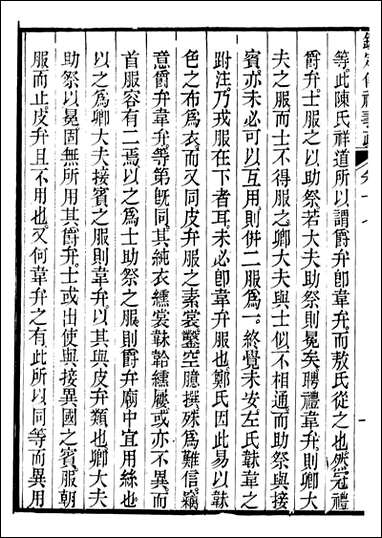 欽定儀禮義疏 卷十七
等此陳氏祥道所以謂爵弁即韋弁而敖氏從之也然冠禮
爵弁士服之以助祭若大夫助祭則冕矣聘禮韋弁則卿大
夫之服而士不得服之卿大夫與士似不相通而助祭與接
賓亦未必可以互用則併二服為一終覺未安左氏韎韋之
跗注乃戎服在下者耳未必即韋弁服也鄭氏因此易以韎
色之布為衣而又同皮弁服之素裳鑿空臆撰殊為難信竊
意爵弁韋弁等第既同其純衣纁裳韎韐纁屨或亦不異而
首服容有二焉以之為士助祭之服則爵弁廟中宜用絲也
以之為卿大夫接賓之服則韋弁以其與皮弁類也卿大夫
助祭以冕固無所用其爵弁士或出使與接異國之賓服朝
服而止皮弁且不用也又何韋弁之有此所以同等而異用